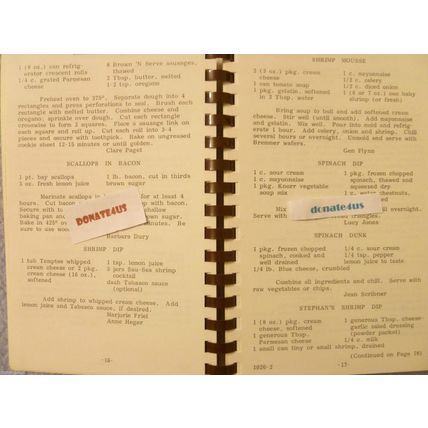 1 (8 oz) can refrig-
erator crescent rolls
1/4 c. grated Parmesan
cheese
8 Brown 'N Serve sausages,
thawed
2 Tbsp. butter, melted
1 2 tsp. oregano
Preheat oven to 375°. Separate dough into 4
rectangles and press perforations to seal. Brush each
rectangle with melted butter. Combine cheese and
oregano; sprinkle over dough. Cut each rectangle
crosswise to form 2 squares. Place a sausage link on
each square and roll up. Cut each roll into 3-4
pieces and secure with toothpick. Bake on ungreased
cookie sheet 12-15 minutes or until golden.
Clare Paget
SCALLOPS IN BACON
1 pt. bay scallops
3 oz. fresh lemon juice
1 lb. bacon, cut in thirds
brown sugar
Marinate scallops in for at least 4
hours. Cut bacon with bacon.
Secure with shallow
baking pan and wn sugar.
Bake at 425° minutes. Be
sure to use woo
Barbara Dury
DONATE4US
SHRIMP DIP
1 tub Temptee whipped
cream cheese or 2 pkg.
cream cheese (16 oz),
softened
1 tsp. lemon juice
3 jars Sau-Sea shrimp
cocktail
dash Tabasco sauce
(optional)
Add shrimp to whipped cream cheese. Add
lemon juice and Tabasco sauce, if desired.
Marjorie Friel
Anne Heger
-16-
SHRIMP MOUSSE
3 (3 oz) pkg. cream
cheese
1 can tomato soup
1 pkg. gelatin, softened
in 3 Tbsp. water
1 c. mayonnaise
1/2 c. celery
1/2 c. diced onion
1 (6 or 7 oz) can baby
shrimp (or fresh)
Bring soup to boil and add softened cream
cheese. Stir well (until smooth). Add mayonnaise
and gelatin. Mix well. Pour into mold and refrig-
erate 1 hour. Add celery, onion and shrimp. Chill
several hours or overnight. Unmold and serve with
Bremner wafers.
Gen Flynn
SPINACH DIP
1 c. sour cream
1 c. mayonnaise
1 pkg. Knorr vegetable
soup mix
1 pkg. frozen chopped
spinach, thawed and
squeezed dry
water chestnuts,
Mix all overnight.
Serve with triangles.
Lucy Jones
donate4us
SPINACH DUNK
1 pkg. frozen chopped
spinach, cooked and
well drained
1/4 lb. Blue cheese, crumbled
1/4 c. sour cream
1/4 tsp. pepper
lemon juice to taste
Combine all ingredients and chill. Serve with
raw vegetables or chips.
Jean Scribner
STEPHAN'S SHRIMP DIP
1 (8 oz) pkg. cream
cheese, softened
1 generous Tbsp.
Parmesan cheese
1 small can tiny or small shrimp, drained
1 generous Tbsp. cheese-
garlic salad dressing
(powder packet)
1/4 c. milk
(Continued on Page 18)
1020-2
-17-